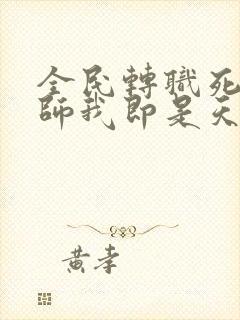 全民轉職死
師我即是天
黃李